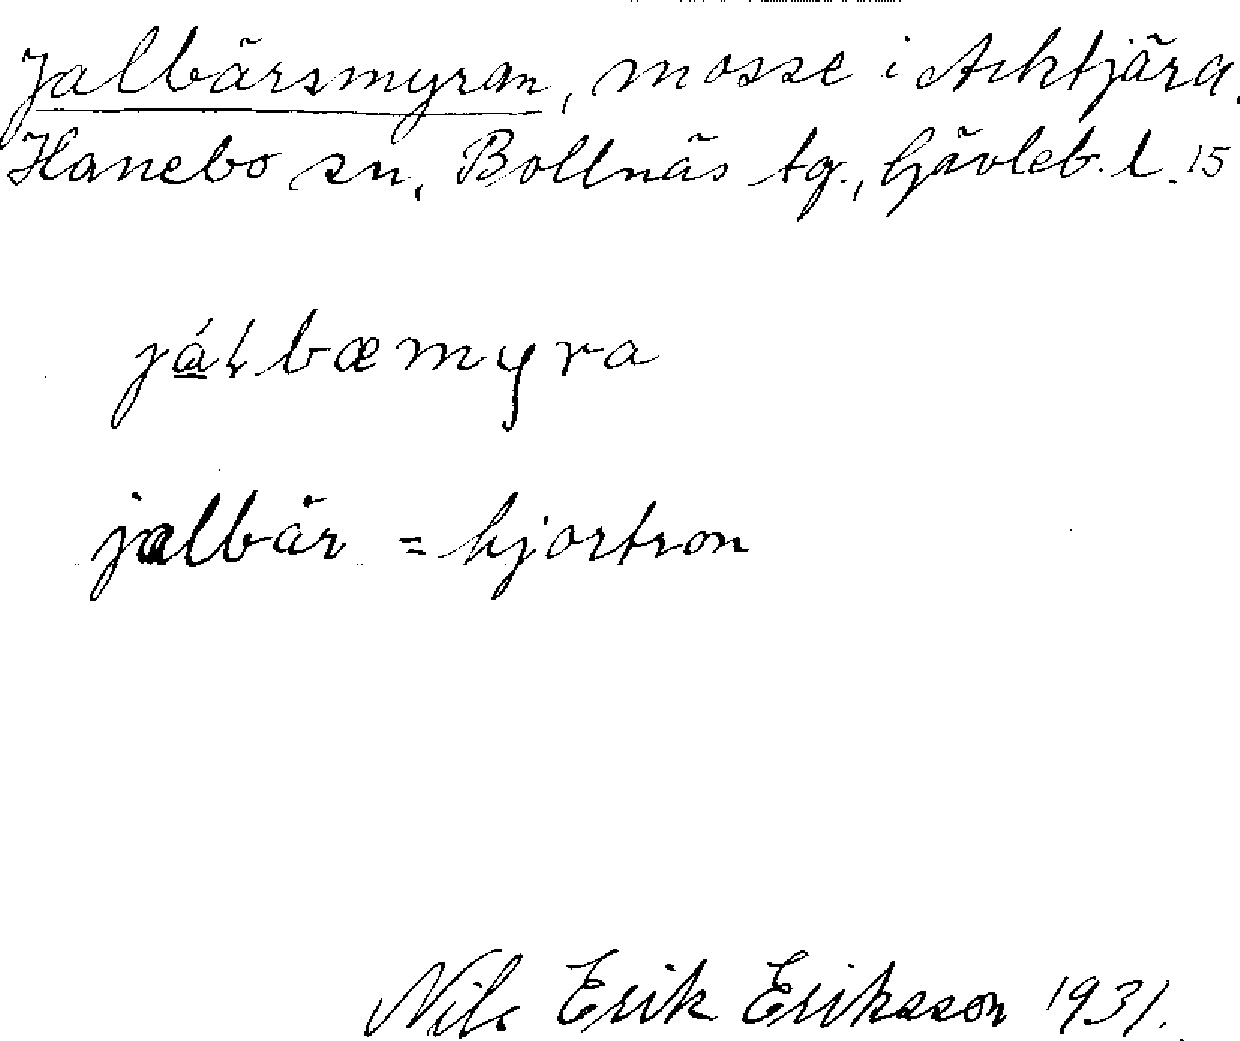 Jalbärsmyran, mosse i Arktjära.
Hanebo sn, Bollnäs tg., Gävleb. l. 15
jálbæmyra
jalbär = hjortron
Nils Erik Eriksson 1931.